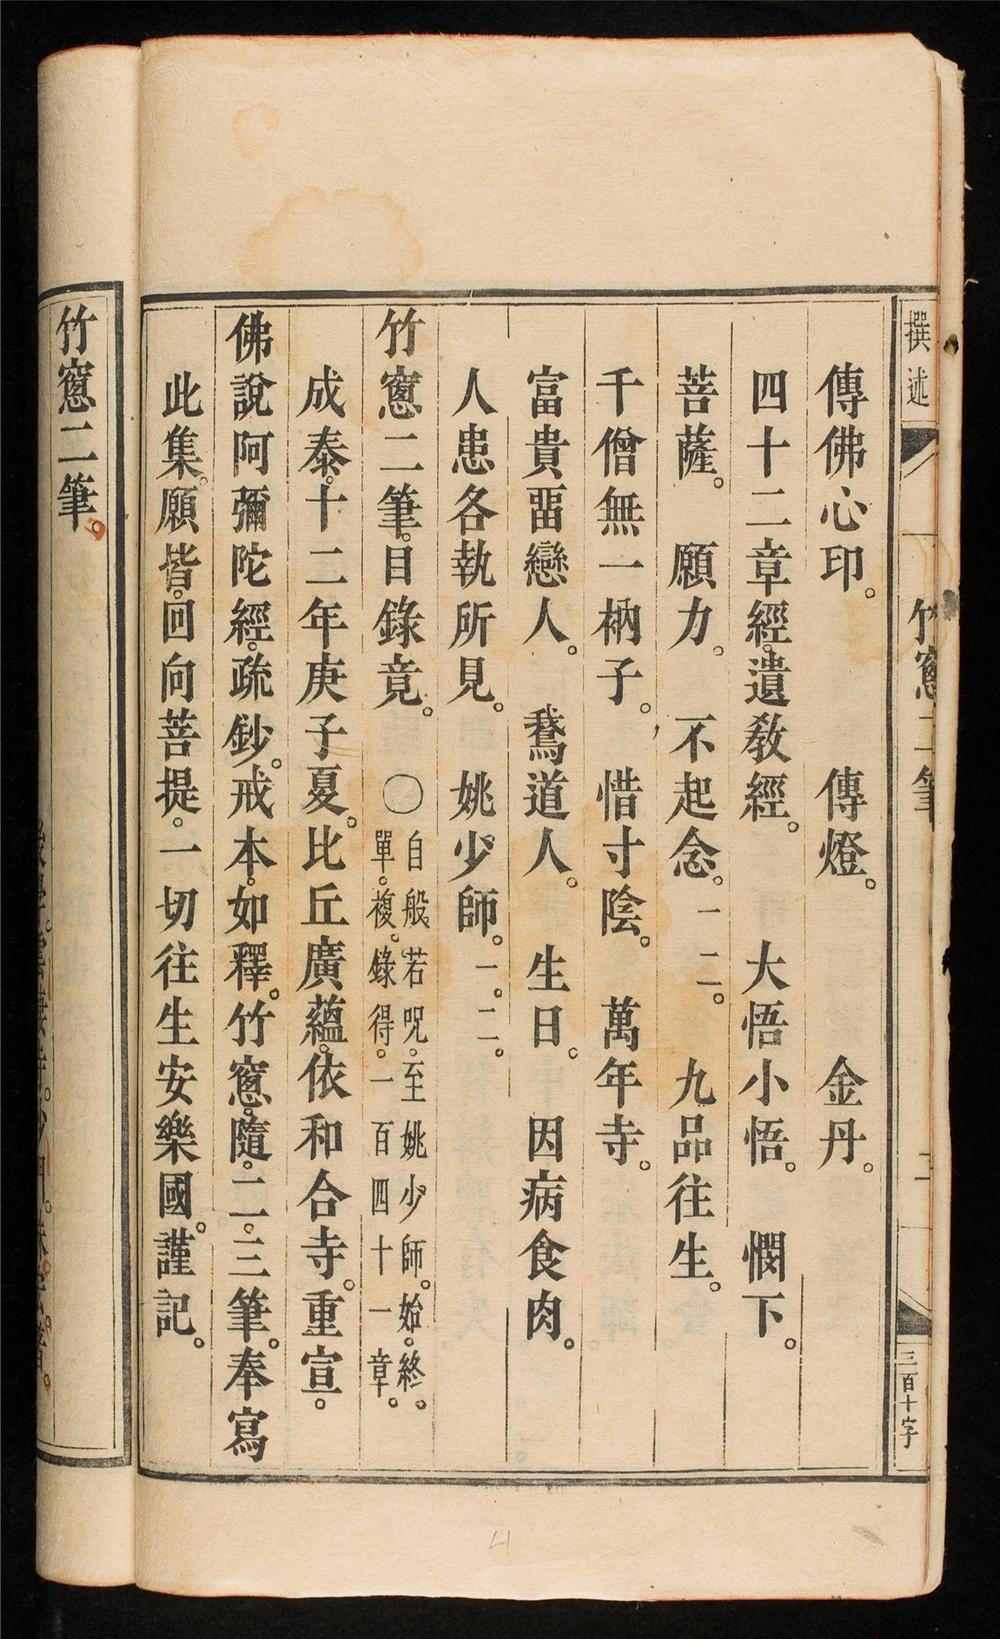 撰述
竹窻二筆
二
三百十字
傳佛心印。 傳燈。 金丹。
四十二章經。遺教經。 大悟小悟。 憫下。
菩薩。 願力。 不起念。一 二。 九品往生。
千僧無一衲子。 惜寸陰。 萬年寺。
富貴畱戀人。 鵞道人。 生日。 因病食肉。
人患各執所見。 姚少師。一。二。
竹窻二筆。目錄竟。 〇 自般若咒。至姚少師。始。終。
單。複。錄得。一百四十一章。
成泰。十二年庚子夏。比丘廣蘊。依和合寺。重宣。
佛說阿彌陀經。疏鈔。戒本。如釋。竹窻。隨。二。三筆。奉寫
此集。願皆。回向菩提。一切往生安樂國。謹記。
竹窻二筆。